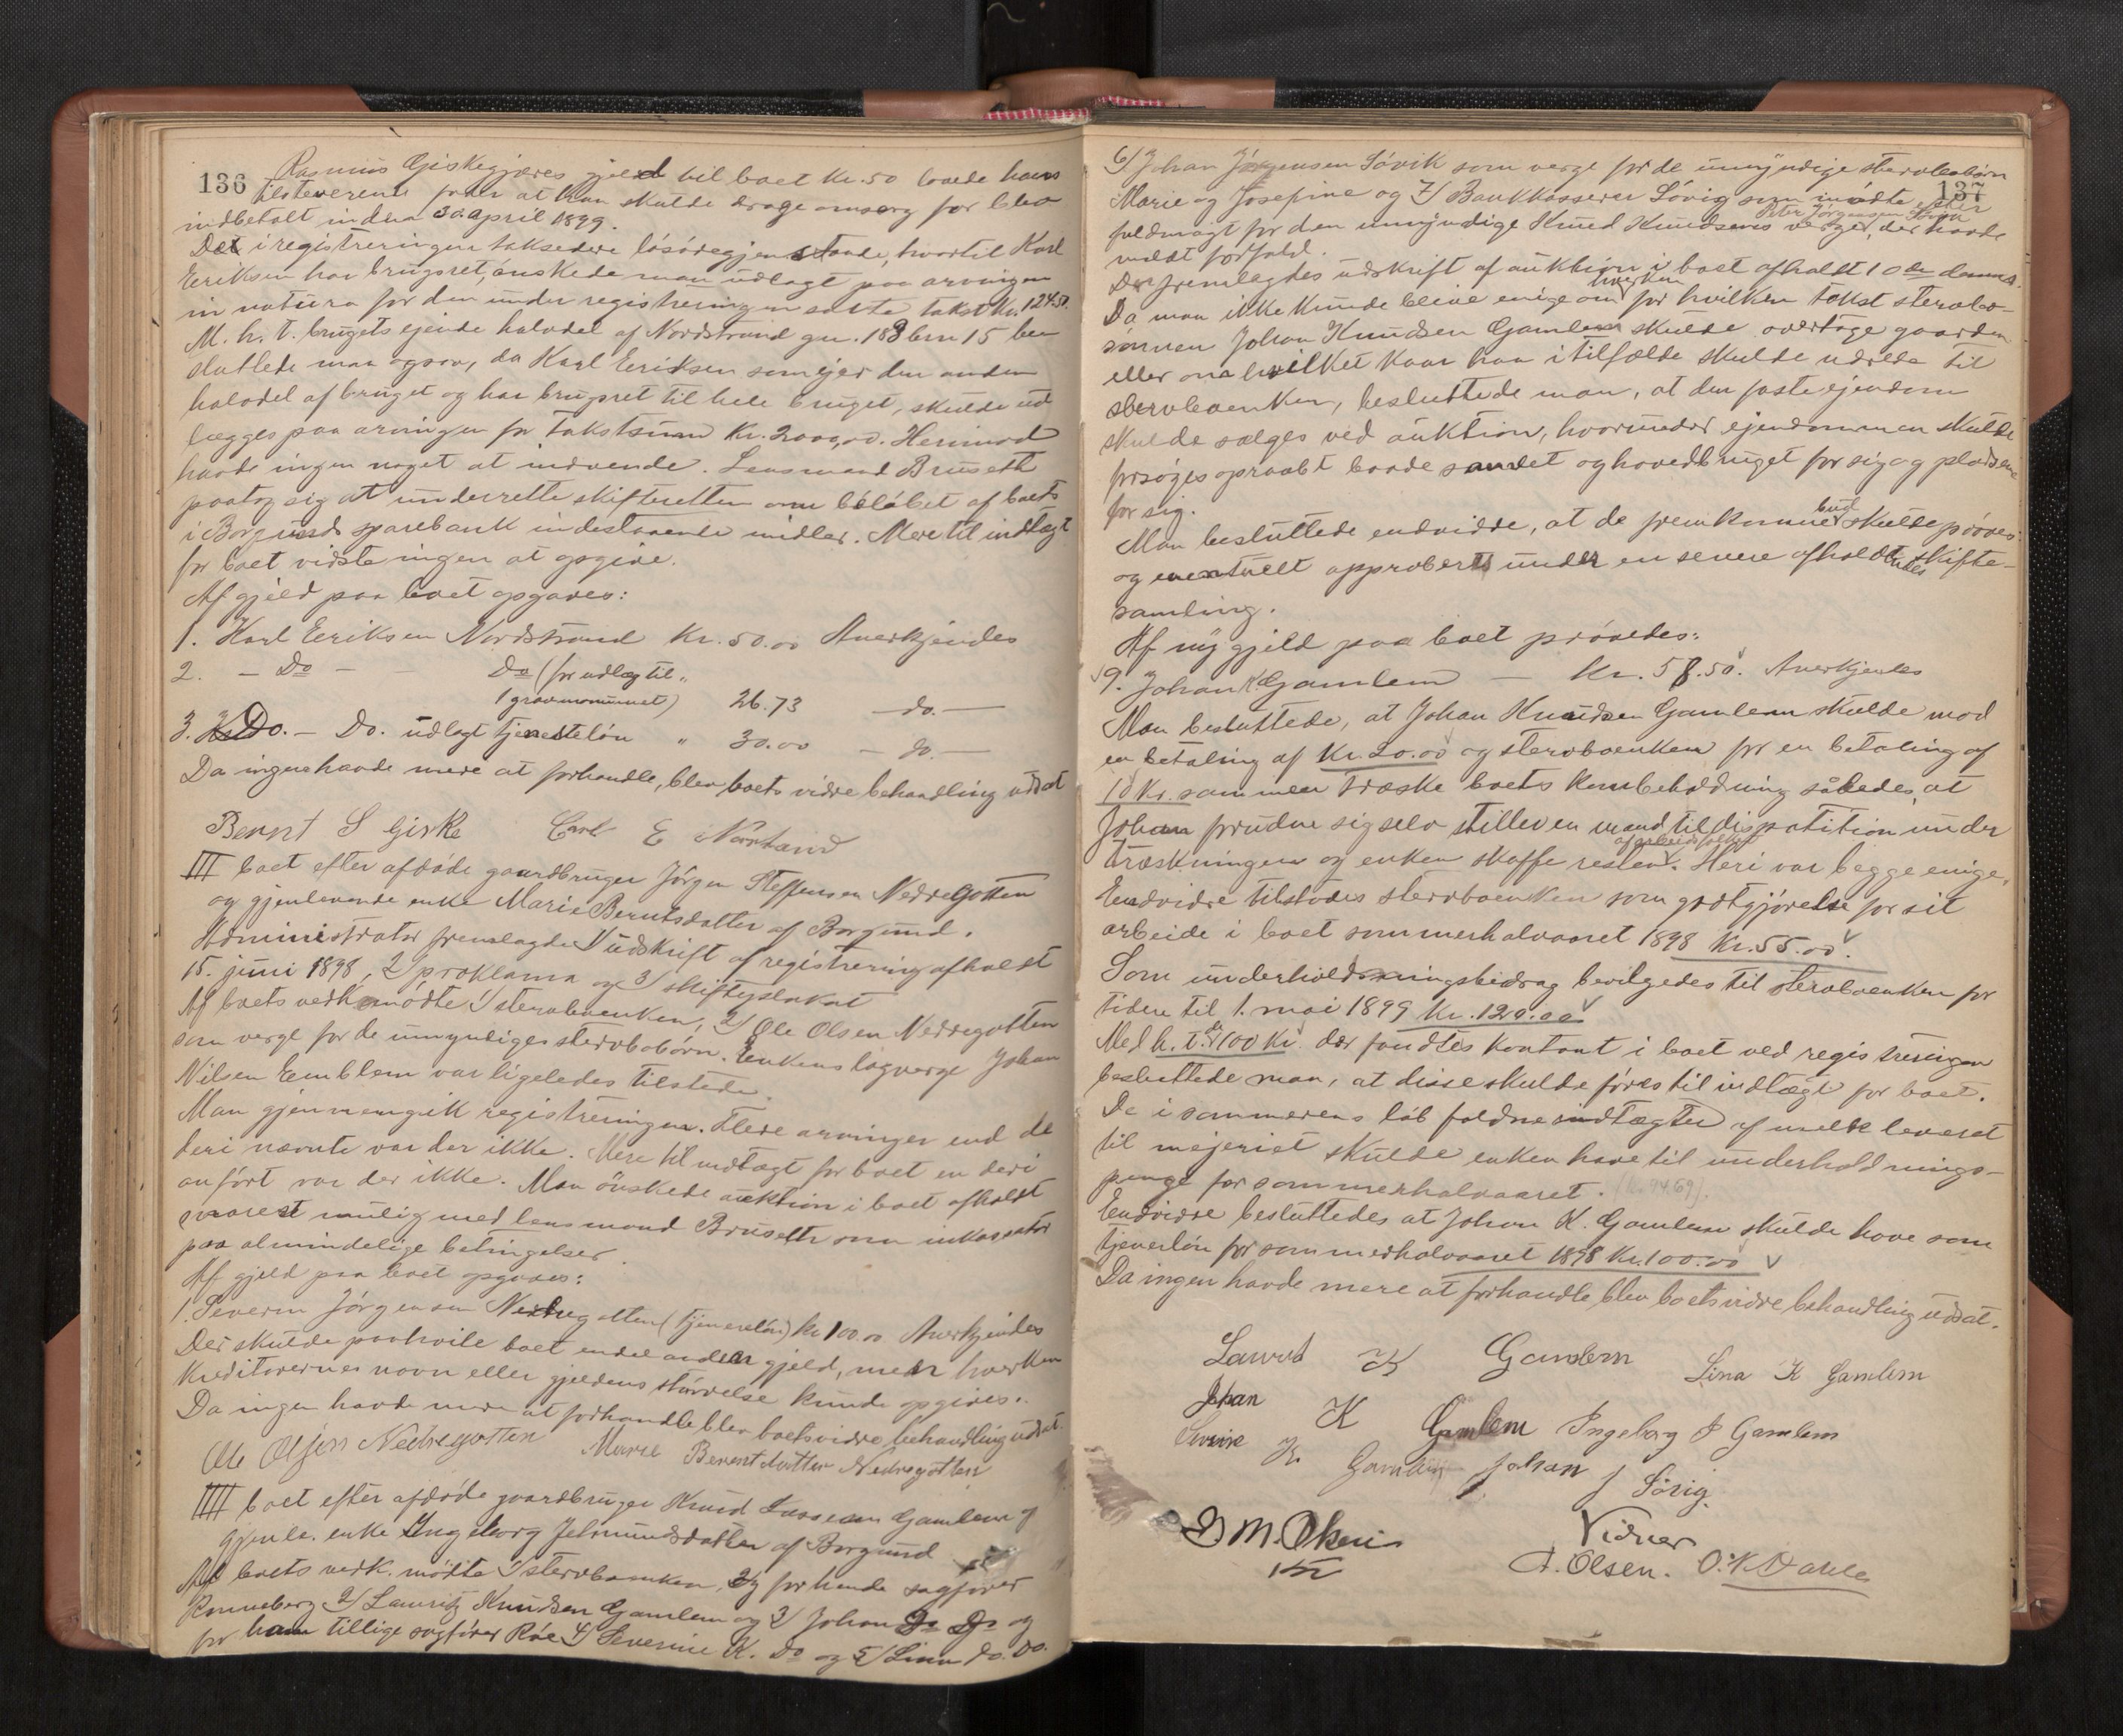 136
Rasmus Giskegjæres gjeld til boet Kr. 50 lovede hans
tilstæværende fader at han skulde drage omsorg for blev
indbetalt inden 30 april 1899.
De i registreringen takserede løsøregjenstande, hvortil Karl
Eriksen har brugsret, ønskede man udlagt paa arvingen
in natura for den under registreringen satte takst Kr. 124.50.
M. h. t. brugets eiende halvdel af Nordstrand gn. 188 brn 15 be-
sluttede man ogsaa, da Karl Eriksen som eier den anden
halvdel af bruget og har brugsret til hele bruget, skulde ud
lægges paa arvingen for takstsum Kr. 2000,00. Herimod
havde ingen noget at indvende. Lensmand Bruseth
paatog sig at underrette skifteretten om beløbet af boets
i Borgund sparebank indestaaende midler. Mere til indtægt
for boet vidste ingen at opgive.
Af gjeld paa boet opgaves:
1. Karl Eriksen Nordstrand Kr. 50.00 Anerkjendes
2. – Do – Do (for udlæg til
1 gravmonument) " 26.73 – do. –
3. Do. – Do. udlagt tjenesteløn " 30.00 – do. –
Da ingen havde mere at forhandle, blev boets vidre behandling udsat
Bernt S Giske Carl E Norstand
III boet efter afdøde gaardbruger Jørgen Steffensen Nedregotten
og gjenlevende enke Marie Berntsdatter af Borgund.
Administrator fremlagde 1/ udskrift af registrering afholdt
15. juni 1898, 2/ proklama og 3/ skifteplakat
Af boets vedk. mødte 1/ stervboenken, 2/ Ole Olsen Nedregotten
som verge for de umyndige stervbobørn. Enkens lagverge Johan
Nilsen Emblem var ligeledes tilstede.
Man gjennemgik registreringen. Flere arvinger end de
deri nævnte var der ikke. Mere til indtægt for boet en deri
anført var der ikke. Man ønskede auktion i boet afholdt
snarest mulig med lensmand Bruseth som inkassator
paa almindelige betingelser.
Af gjeld paa boet opgaves:
1. Severin Jørgensen Nedregotten (tjenerløn) Kr 100.00 Anerkjendes
Der skulde paahvile boet endel anden gjeld, men hverken
Kreditorernes navn eller gjeldens størrelse kunde opgives.
Da ingen havde mere at forhandle blev boets vidre behandling udsat.
Ole Olsen Nedregotten Marie Berentdatter Nedregotten
IIII boet efter afdøde gaardbruger Knud Larssen Gamlem og
gjenle. enke Ingeborg Jetmundsdatter af Borgund
Af boets vedk. mødte 1/ stervboenken, og for hende sagfører
Rønneberg 2/ Lauritz Knudsen Gamlem og 3/ Johan Do Do og
for ham tillige sagfører Røe 4/ Severine K. Do og 5/ Lina do. do.
137
6/ Johan Jørgensen Søvik som verge for de umyndige stervbobørn
Marie og Josefine og 7/ Bankkasserer Søvig som mødte efter
fuldmagt for den umyndige Knud Knudsens verge, Peter Jørgensen Søvik der havde
meldt forfald.
Der fremlagdes udskrift af auktion i boet afholdt 10de dennes.
Da man ikke kunde blive enige om hverken for hvilken takst stervbo-
sønnen Johan Knudsen Gamlem skulde overtage gaarden
eller om hvilket kaar han i tilfælde skulde udrede til
stervboenken, besluttede man, at den faste eiendom
skulde sælges ved auktion, hvorunder eiendommen skulde
forsøges opraabt baade samlet og hovedbruget for sig og pladsene
for sig.
Man besluttede endvidre, at de fremkomne bud skulde prøves
og eventuelt approberes under en senere afholdendes skifte-
samling.
Af ny gjeld paa boet prøvedes:
9. Johan K. Gamlem – Kr. 58.50. Anerkjendes
Man besluttede, at Johan Knudsen Gamlem skulde mod
en betaling af Kr. 20.00 og stervboenken for en betaling af
10 Kr. sammen træske boets kornbeholdning således, at
Johan foruden sig selv stiller en mand til disposition under
træskningen og enken skaffe resten af arbeidsfolket. Heri var begge enige.
Endvidre tilstodes stervboenken som godtgjørelse for sit
arbeide i boet sommerhalvaaret 1898 Kr. 55.00.
Som underholdningsbidrag bevilgedes til stervboenken for
tiden til 1. mai 1899 Kr. 120.00
Med h. t. de 100 Kr. der fandtes kontant i boet ved registreringen
besluttede man, at disse skulde føres til indtægt for boet.
De i sommerens løb faldne indtægter af melk leveret
til mejeriet skulde enken have til underholdnings-
penge for sommerhalvaaret. (Kr. 94.69).
Endvidre besluttedes at Johan K. Gamlem skulde have som
tjenerløn for sommerhalvaaret 1898 Kr. 100.00
Da ingen havde mere at forhandle blev boets vidre behandling udsat.
Laurits K Gamlem Lina K Gamlem
Johan K Gamlem Ingeborg J Gamlem
Severine K. Gamlem Johan J Søvig.
Vidner
A. Olsen. O. K. Dahle